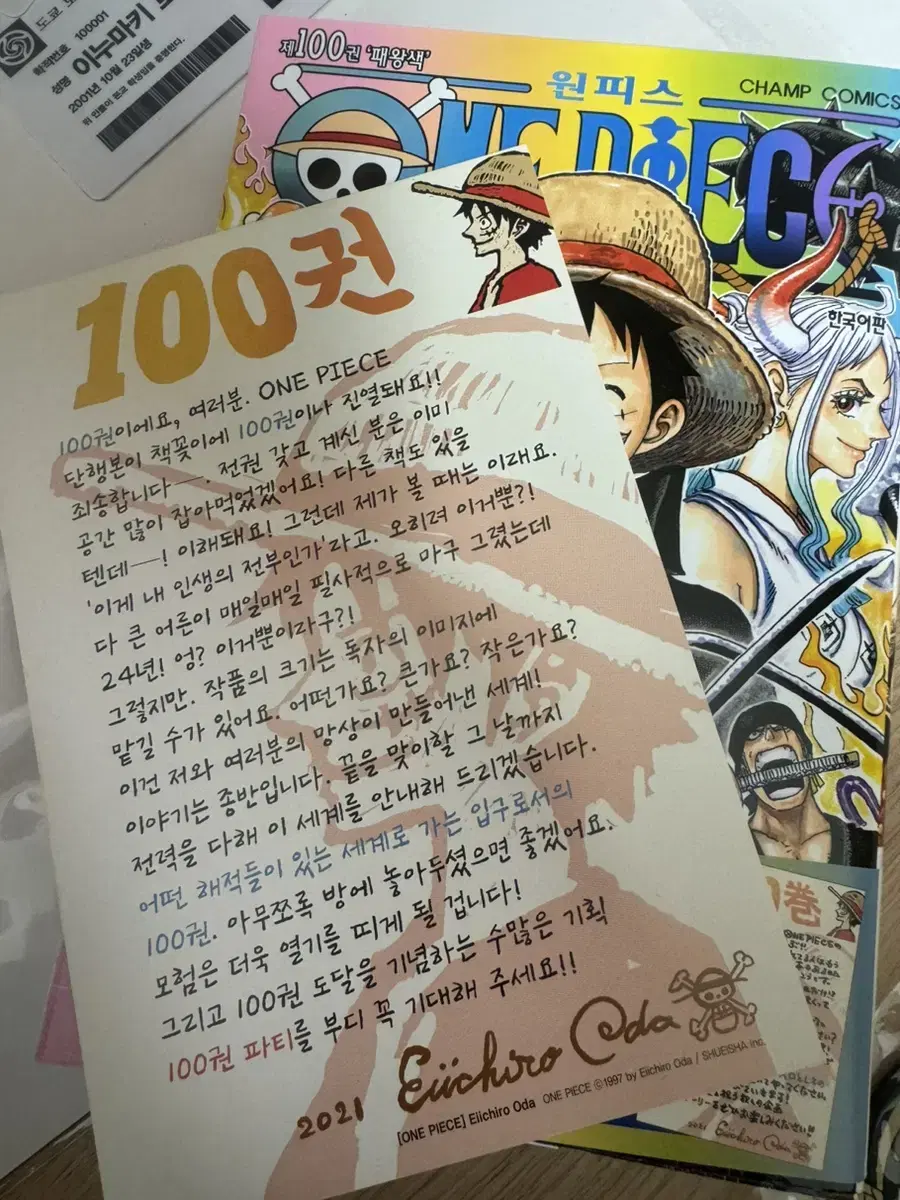 도쿄
학적번호 100001
성명 이누마키
2001년 10월 23일생
위 인물이 본교 학생임을 증명한다.
제100권 '패왕색'
원피스
CHAMP COMICS
ONE PIECE
한국어판
100권
100권이에요, 여러분. ONE PIECE
단행본이 책꽂이에 100권이나 진열돼요!!
죄송합니다—. 전권 갖고 계신 분은 이미
공간 많이 잡아먹었겠어요! 다른 책도 있을
텐데—! 이해돼요! 그런데 제가 볼 때는 이래요.
'이게 내 인생의 전부인가'라고. 오히려 이거뿐?!
다 큰 어른이 매일매일 필사적으로 마구 그렸는데
24년! 엉? 이거뿐이라구?!
그렇지만. 작품의 크기는 독자의 이미지에
맡길 수가 있어요. 어떤가요? 큰가요? 작은가요?
이건 저와 여러분의 망상이 만들어낸 세계!
이야기는 종반입니다. 끝을 맞이할 그 날까지
전력을 다해 이 세계를 안내해 드리겠습니다.
어떤 해적들이 있는 세계로 가는 입구로서의
100권. 아무쪼록 방에 놓아두셨으면 좋겠어요.
모험은 더욱 열기를 띠게 될 겁니다!
그리고 100권 도달을 기념하는 수많은 기획
100권 파티를 부디 꼭 기대해 주세요!!
2021 Eiichiro Oda
[ONE PIECE] Eiichiro Oda ONE PIECE ©1997 by Eiichiro Oda / SHUEISHA inc.
巻
ONE PIECEの
2021 Eiichiro Oda